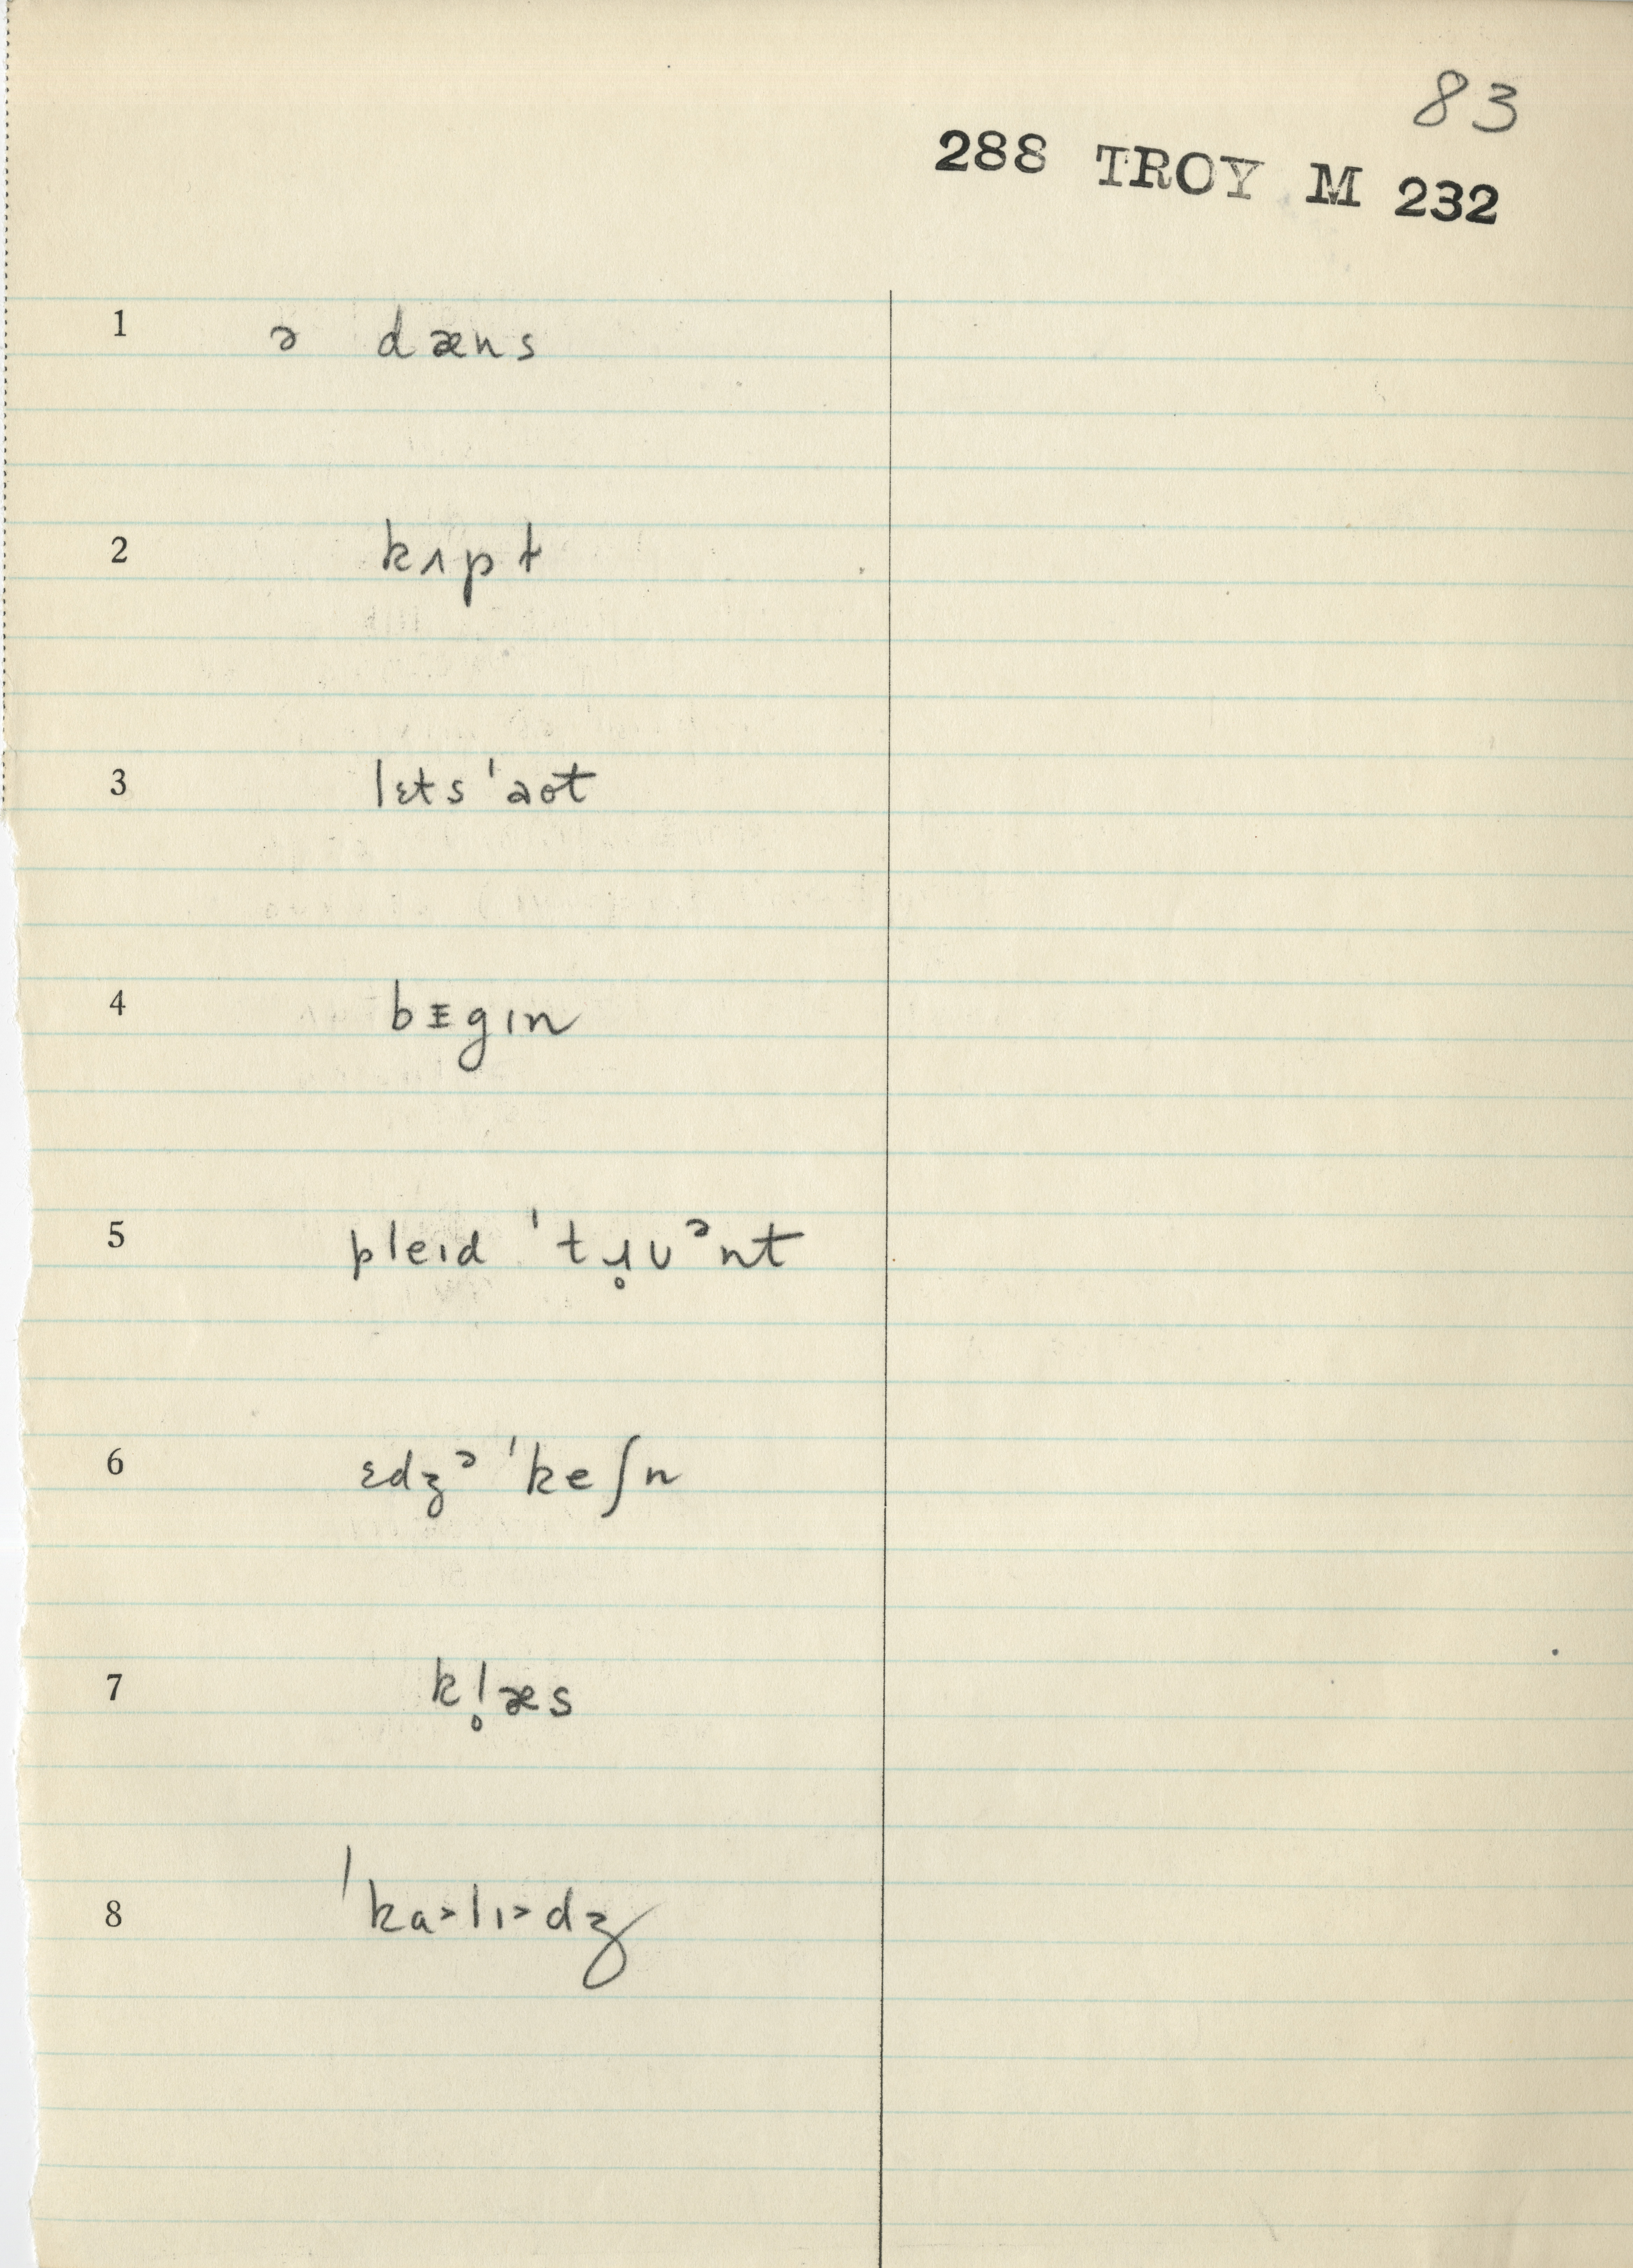 83
288 TROY M 232
1 ə dæns
2 kɪpt
3 lɛts ˈəot
4 bᵻgɪn
5 pleɪd ˈtɹ̥ᴜᵊnt
6 ɛdʒᵊˈkeʃn
7 kl̥æs
8 ˈka˃lɪ˃dʒ